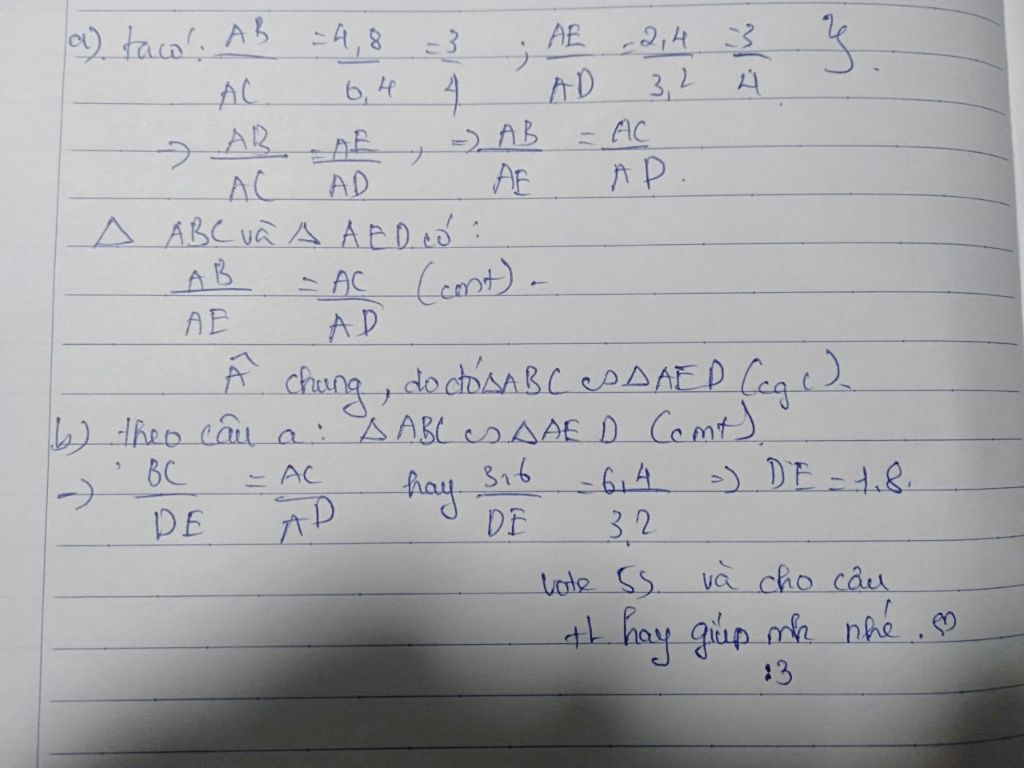 a). ta có: AB/AC = 4,8/6,4 = 3/4 ; AE/AD = 2,4/3,2 = 3/4
=> AB/AC = AE/AD, => AB/AE = AC/AD.
Δ ABC và Δ AED có:
AB/AE = AC/AD (cmt).
 chung, do đó ΔABC ∽ ΔAED (cgc).
b) theo câu a: ΔABC ∽ ΔAED (cmt).
-> BC/DE = AC/AD hay 3,6/DE = 6,4/3,2 => DE = 1,8.
vote 5s và cho câu
tl hay giúp mk nhé. ♡
:3